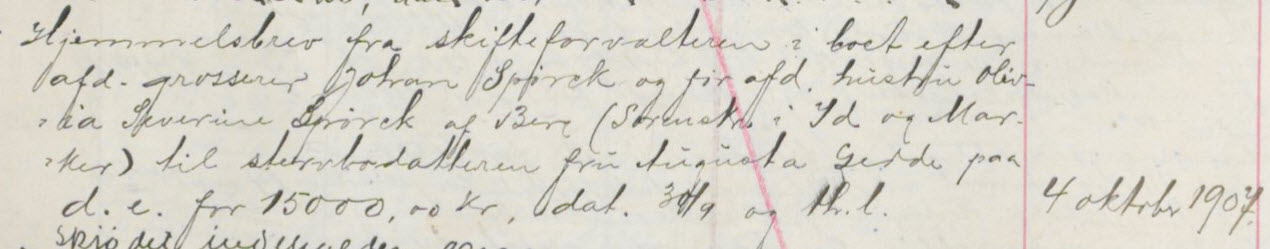 Hjemmelsbrev fra skifteforvalteren i boet efter
afd. grosserer Johan Spörck og før afd. hustru Oliv-
ia Severine Spörck af Berg (Sorenskr. i Id og Mar-
ker) til stervbodatteren fru Augusta Gedde paa
d. e. for 15000,00 kr, dat. 30/9 og th.l. 4 oktober 1907.
Skjödet